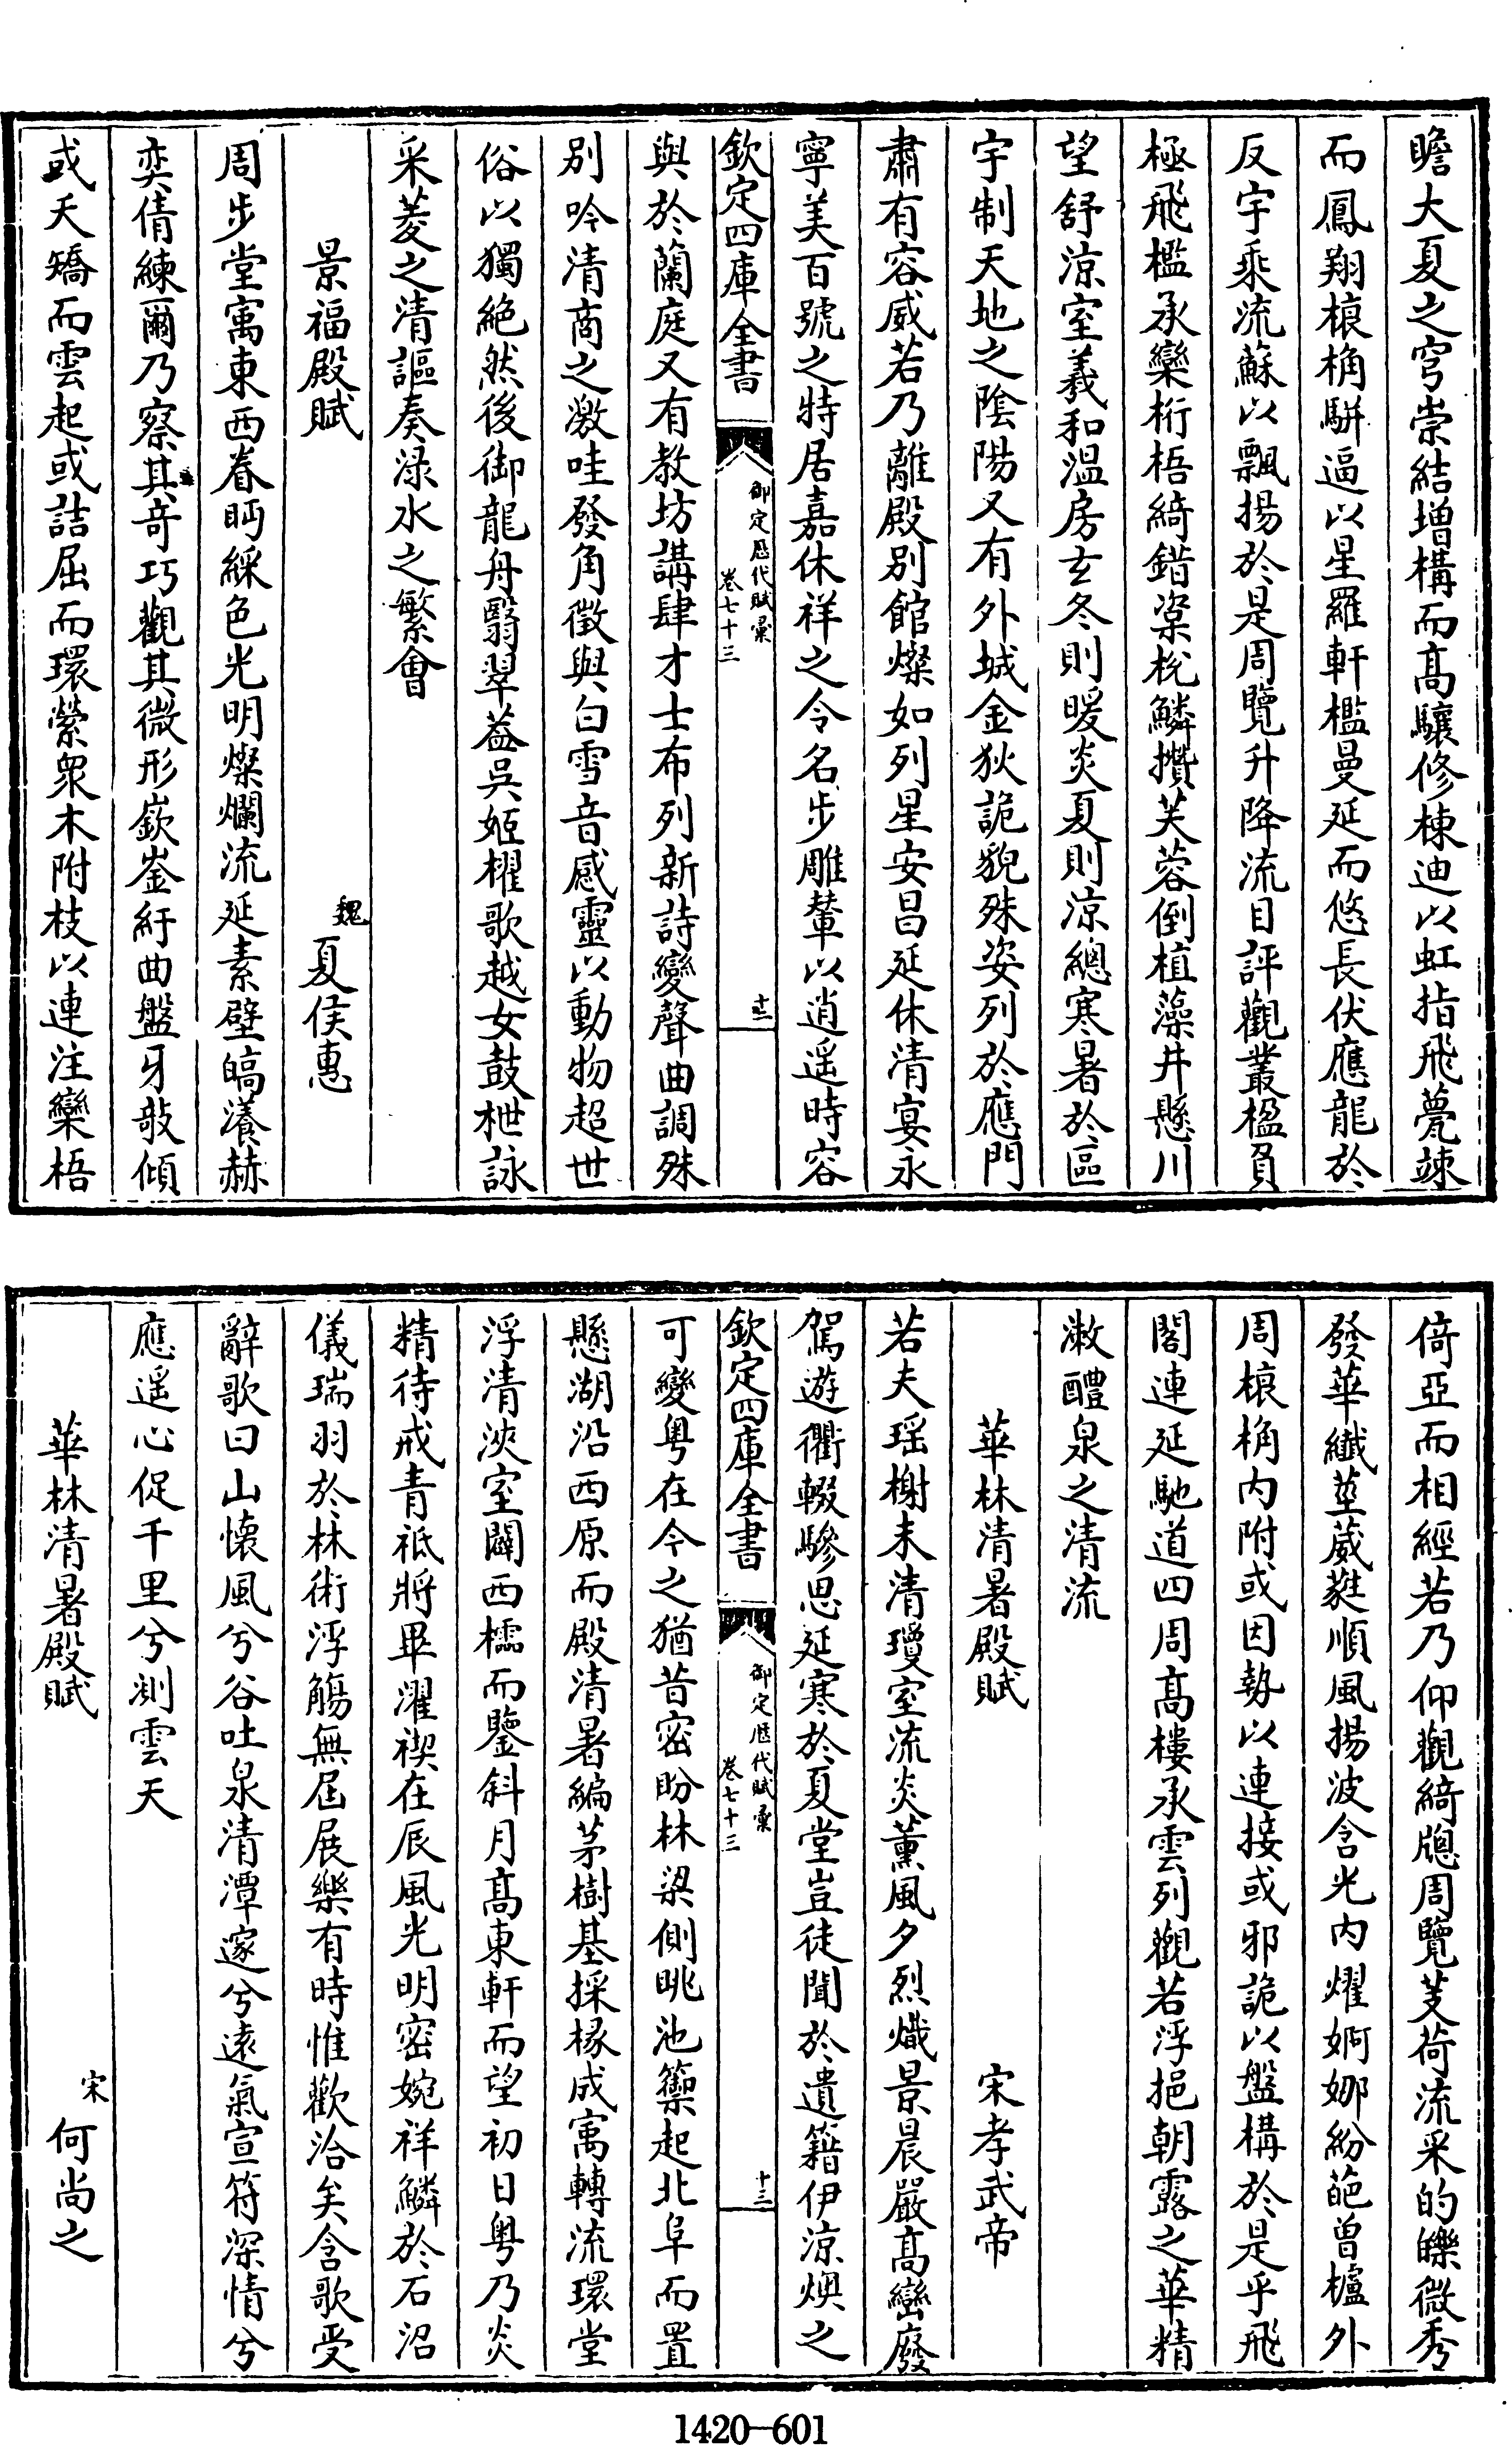 瞻大夏之穹崇結增構而高驤修棟迪以虹指飛甍竦
而鳳翔榱桷駢逼以星羅軒檻曼延而悠長伏應龍於
反宇乘流蘇以飄揚於是周覽升降流目評觀叢楹負
極飛檻承欒桁梧綺錯楶梲鱗攢芙蓉倒植藻井懸川
望舒涼室羲和溫房玄冬則暖炎夏則涼總寒暑於區
宇制天地之陰陽又有外城金狄詭貌殊姿列於應門
肅有容威若乃離殿别館燦如列星安昌延休清宴永
寧美百號之特居嘉休祥之令名步雕輦以逍遥時容
欽定四庫全書
御定歷代賦彙
卷七十三
十三
與於蘭庭又有教坊講肆才士布列新詩變聲曲調殊
别吟清商之激哇發角徵與白雪音感靈以動物超世
俗以獨絶然後御龍舟翳翠葢吳姬櫂歌越女鼓枻詠
采菱之清謳奏淥水之繁會
景福殿賦
魏夏侯惠
周步堂寓東西眷眄綵色光明燦爛流延素壁皜瀁赫
奕倩練爾乃察其竒巧觀其微形嶔崟紆曲盤牙欹傾
或夭矯而雲起或詰屈而環縈衆木附枝以連注欒梧
倚亞而相經若乃仰觀綺牕周覽芰荷流采的皪微秀
發華纖莖葳蕤順風揚波含光内燿婀娜紛葩曾櫨外
周榱桷内附或因勢以連接或邪詭以盤構於是乎飛
閣連延馳道四周髙樓承雲列觀若浮挹朝露之華精
漱醴泉之清流
華林清暑殿賦
宋孝武帝
若夫瑶榭未清瓊室流炎薰風夕烈熾景晨嚴髙巒廢
駕遊衢輟驂思延寒於夏堂豈徒聞於遺籍伊涼燠之
欽定四庫全書
御定歷代賦彙
卷七十三
十三
可變粤在今之猶昔密盼林梁側眺池籞起北阜而置
懸湖沿西原而殿清暑編茅樹基採椽成寓轉流環堂
浮清浹室闢西櫺而鑒斜月髙東軒而望初日粤乃炎
精待戒青祇將畢濯禊在辰風光明密婉祥鱗於石沼
儀瑞羽於林術浮觴無屆展樂有時惟歡洽矣含歌受
辭歌曰山懷風兮谷吐泉清潭邃兮遠氣宣符深情兮
應遥心促千里兮測雲天
華林清暑殿賦
宋何尚之
1420—601